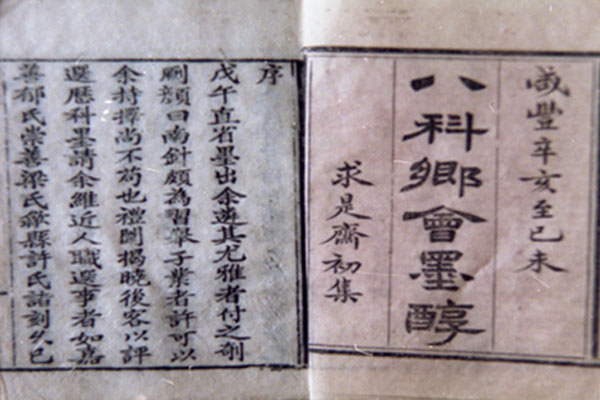 咸豐辛亥至己未
八科鄉會墨醇
求是齋初集
序
戊午直省墨出余遴其尤雅者付之剞
劂顏曰南針頗為習舉子業者許可以
余持擇尚不苟也禮闈揭曉後客以評
選歷科墨請余維近人職選事者如嘉
善郁氏崇善梁氏歙縣許氏諸刻久已